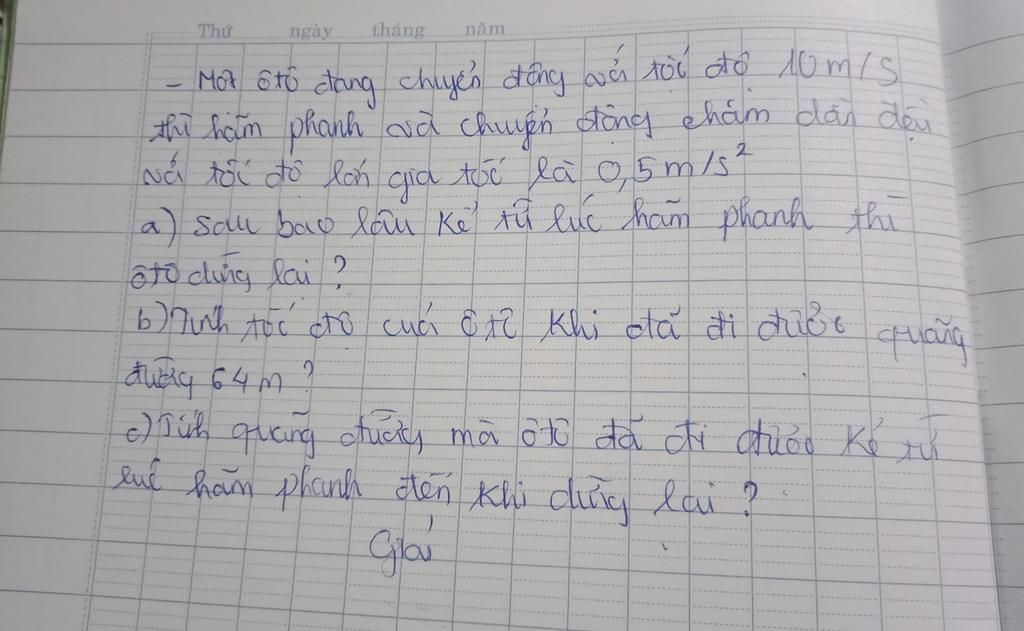 Thứ ngày tháng năm
- Một ôtô đang chuyển động với tốc độ 10m/s
thì hãm phanh và chuyển động chậm dần đều
với tốc độ lớn gia tốc là 0,5m/s²
a) Sau bao lâu kể từ lúc hãm phanh thì
ôtô dừng lại?
b) Tính tốc độ của ôtô khi đã đi được quãng
đường 64m?
c) Tính quãng đường mà ôtô đã đi được kể từ
lúc hãm phanh đến khi dừng lại?
Giải